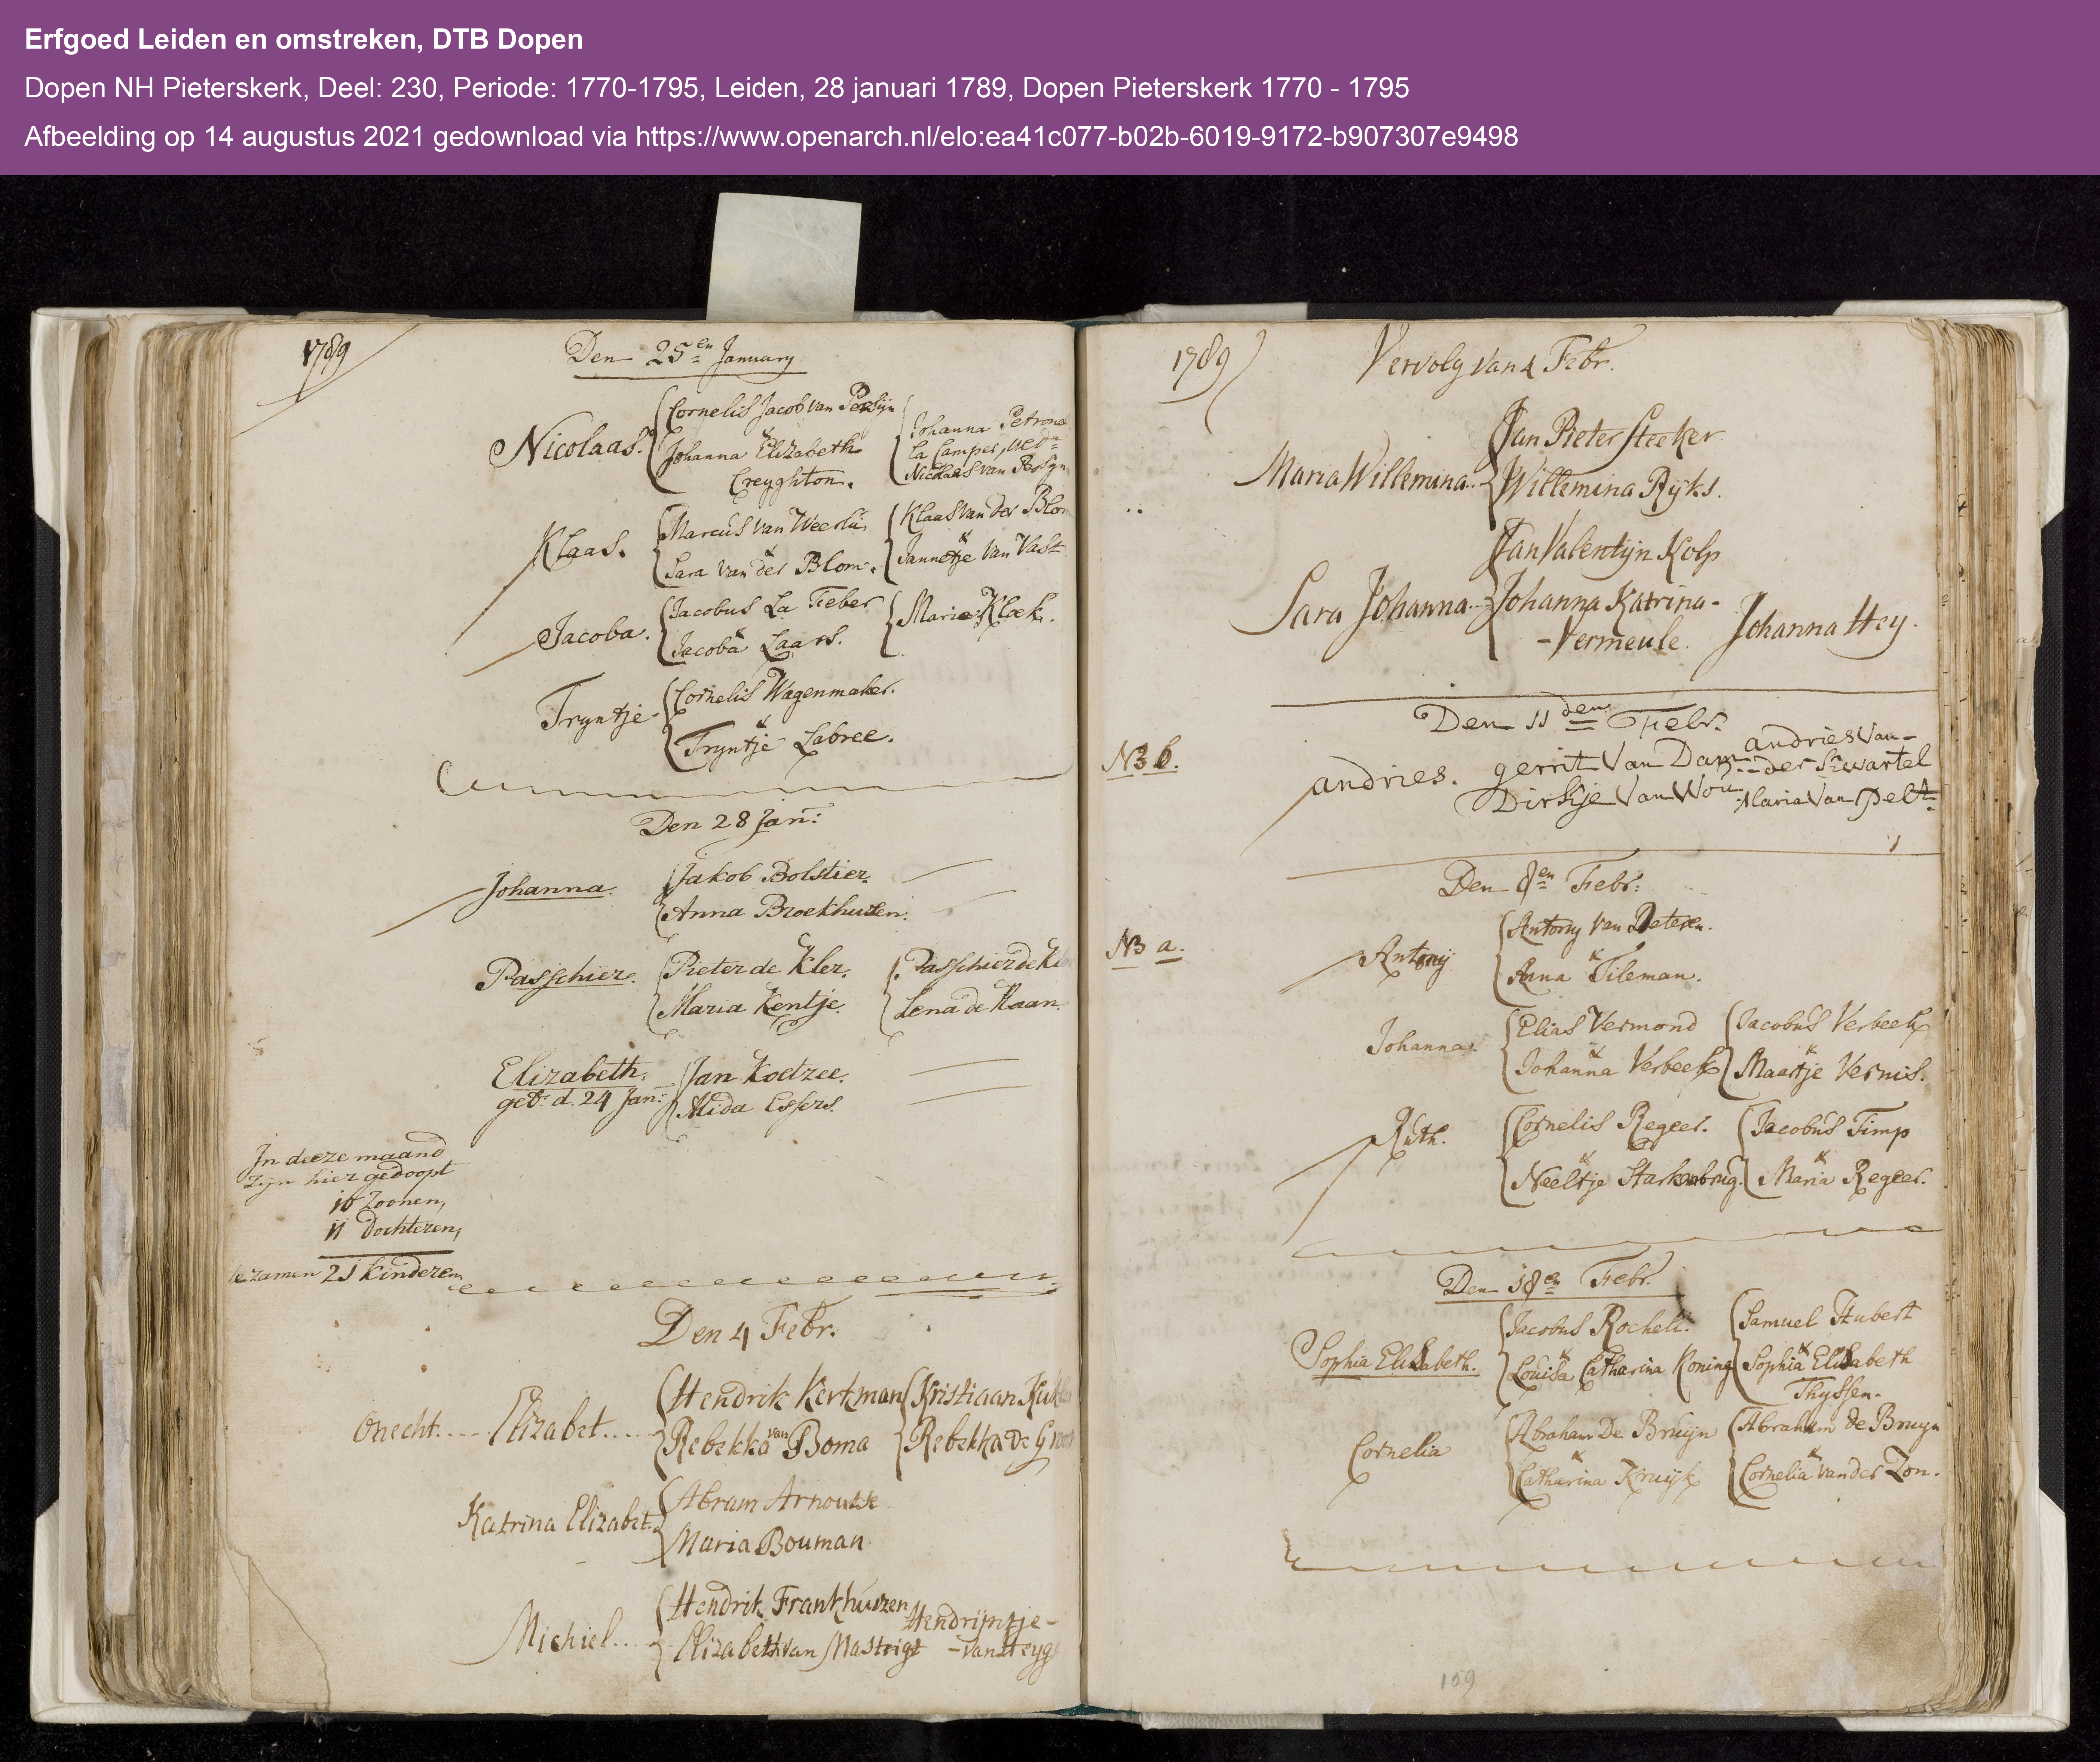 Erfgoed Leiden en omstreken, DTB Dopen
Dopen NH Pieterskerk, Deel: 230, Periode: 1770-1795, Leiden, 28 januari 1789, Dopen Pieterskerk 1770 - 1795
Afbeelding op 14 augustus 2021 gedownload via https://www.openarch.nl/elo:ea41c077-b02b-6019-9172-b907307e9498
1789
Den 25en January
Nicolaas.
Cornelis Jacob van Persijn
&
Johanna Elizabeth
Creyghton.
Johanna Petrona
La Camper, wedu
Nicolaas van Persyn
Klaas.
Marcus van Weerlu
&
Sara van der Blom.
Klaas van der Blom
&
Jannetje van Vast
Jacoba.
Jacobus La Feber
&
Jacoba Laars.
Maria Kloek.
Tryntje
Cornelis Wagenmaker.
&
Tryntje Labree.
Den 28 Jan:
Johanna.
Jakob Bolstier.
Anna Broekhuizen.
Passchier.
Pieter de Kler.
Maria Kentje.
Passchier de
Lena de Haan.
Elizabeth.
geb: d. 24 Jan:
Jan Koetzee.
Alida Essers.
In deeze maand
zijn hier gedoopt
10 Zoonen,
11 Dochteren,
te zamen 21 kinderen
Den 4 Febr.
Onecht.... Elizabet.....
Hendrik Kerkman
Rebekka van Boma
Kristiaan
Rebekka de
Katrina Elizabet.
Abram Arnoutse
Maria Bouman
Michiel...
Hendrik Frankhuizen
Elizabeth van Mastrigt
Hendrijntje-
-van
1789
Vervolg van 4 Febr.
Maria Willemina..
Jan Pieter Steeker
Willemina Rijks.
Sara Johanna..
Jan Valentijn Kolp
Johanna Katrina-
-Vermeule.
Johanna Hey.
Den 11den Febr.
NB b.
andries.
gerrit Van Dam
Dirkje Van Wou
andries Van-
--der Swartel
Maria Van pelt
Den 8en Febr:
NB a.
Antonij
Antony van Peteren.
&
Anna Tileman.
Johanna.
Elias Vermond
&
Johanna Verbeek
Jacobus Verbeek
&
Maartje Vernis.
Ruth.
Cornelis Regeer.
&
Neeltje Starkenbrug.
Jacobus Timp
&
Maria Regeer.
Den 18en Febr.
Sophia Elisabeth.
Jacobus Rochell.
&
Louisa Catharina Koning
Samuel Hubert
&
Sophia Elisabeth
Thyssen.
Cornelia
Abraham De Bruijn
&
Catharina Kruijk
Abraham de Bruyn
&
Cornelia van der Zon.
159